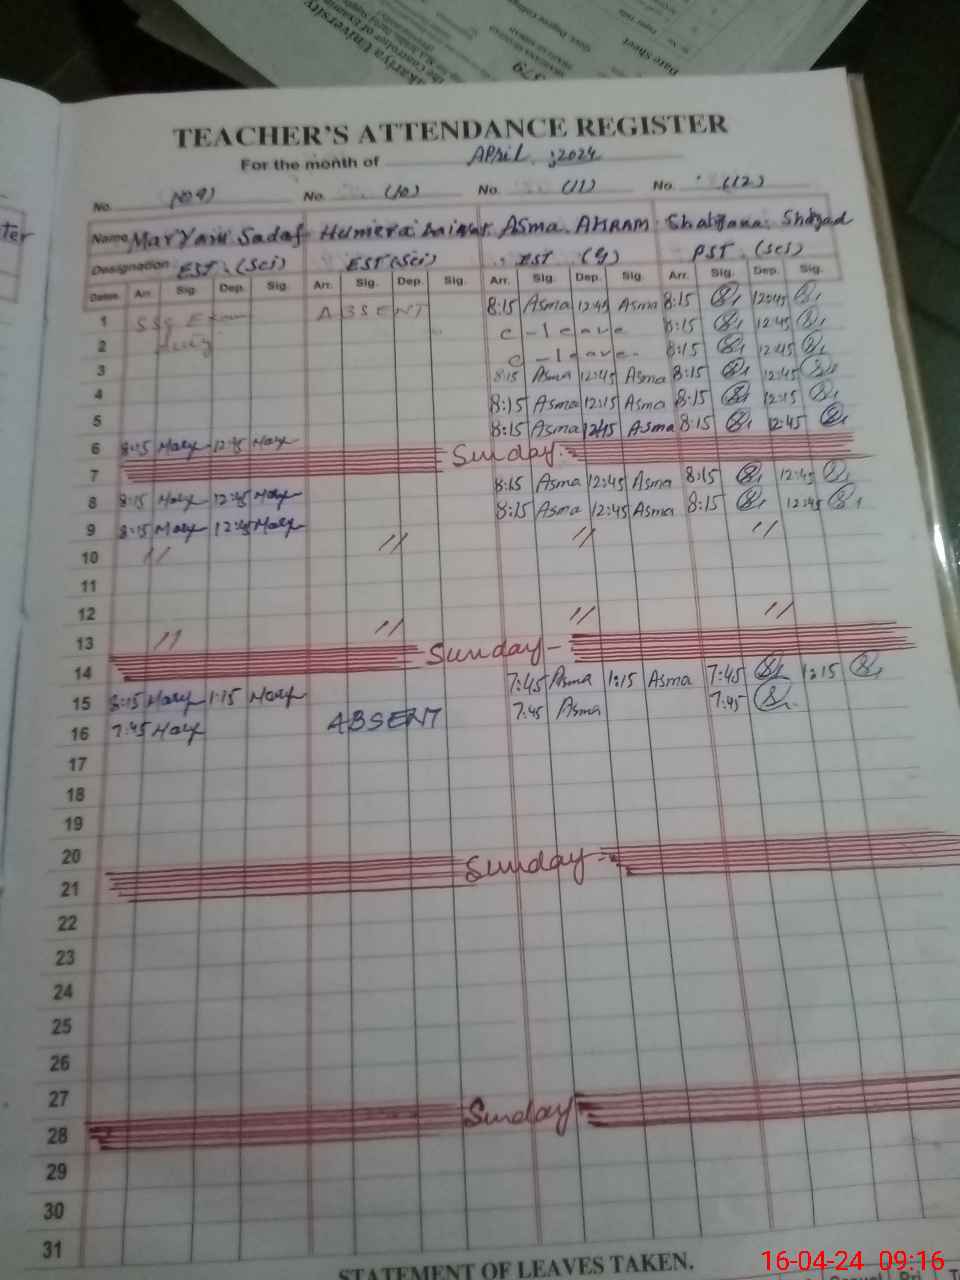 Date Sheet
379
TEACHER'S ATTENDANCE REGISTER
For the month of April, 2024
No. (No 9) No. (10) No. (11) No. (12)
ter
Name Maryam Sadaf Humera Asma AKRAM Shahzad
Designation EST. (Sci) EST (Sci) EST PST. (Sci)
Dates Arr. Sig. Dep. Sig. Arr. Sig. Dep. Sig. Arr. Sig. Dep. Sig. Arr. Sig. Dep. Sig.
1 ABSENT 8:15 Asma 12:45 Asma 8:15 12:45
2 c-leave 8:15 12:45
3 c-leave. 8:15 12:45
4 8:15 Asma 12:45 Asma 8:15 12:45
5 8:15 Asma 12:15 Asma 8:15 12:15
6 8:15 Mary 12:45 Mary 8:15 Asma 12:45 Asma 8:15 12:45
7 Sunday
8 8:15 Mary 12:45 Mary 8:15 Asma 12:45 Asma 8:15 12:45
9 8:15 Mary 12:45 Mary 8:15 Asma 12:45 Asma 8:15 12:45
10 // // // //
11
12
13 // // // //
14 Sunday
15 8:15 Mary 1:15 Mary 7:45 Asma 1:15 Asma 7:45 1:15
16 7:45 Mary ABSENT 7:45 Asma 7:45
17
18
19
20
21 Sunday
22
23
24
25
26
27
28 Sunday
29
30
31
STATEMENT OF LEAVES TAKEN.
16-04-24 09:16